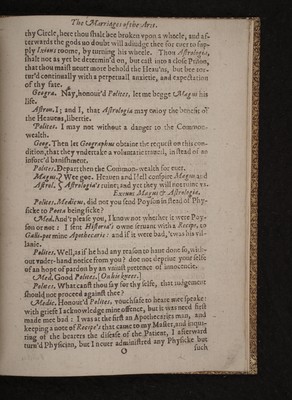 The Marriages of the Arts.
thy Circle, here thou shalt bee broken vpon a wheele, and af-
terwards the gods no doubt will adiudge thee for euer to sup-
ply Ixions roome, by turning his wheele. Thou Astrologia,
shalt not as yet be determin'd on, but cast into a close Prison,
that thou maist neuer more behold the Heau'ns, but bee tor-
tur'd continually with a perpetuall anxietie, and expectation
of thy fate.
Geogra. Nay, honour'd Polites, let me begge Magus his
life.
Astron. I; and I, that Astrologia may enioy the benefit of
the Heauens, libertie.
Polites. I may not without a danger to the Common-
wealth.
Geog. Then let Geographus obtaine the request on this con-
dition, that they vndertake a voluntarie trauell, in stead of an
inforc'd banishment.
Polites. Depart then the Common-wealth for euer.
Magus. Wee goe. Heauen and Hell conspire Magus and
Astrol. Astrologia's ruine; and yet they will not ruine vs.
Exeunt Magus & Astrologia.
Polites. Medicus, did not you find Poyson in stead of Phy-
sicke to Poeta being sicke?
Med. And 'please you, I know not whether it were Poy-
son or not: I sent Historia's owne seruant with a Recipe, to
mine Apothecarie: and if it were bad, 'twas his vil-
lanie.
Polites. Well, as if he had any reason to haue done so, with-
out vnder-hand notice from you? doe not depriue your selfe
of an hope of pardon by an vniust pretence of innocencie.
Med. Good Polites. On his knees.
Polites. What canst thou say for thy selfe, that iudgement
should not proceed against thee?
Medic. Honour'd Polites, vouchsafe to heare mee speake:
with griefe I acknowledge mine offence, but it was need first
made mee bad: I was at the first an Apothecaries man, and
keeping a note of Recipe's that came to my Master, and inqui-
ring of the bearers the disease of the Patient, I afterward
turn'd Physician, but I neuer administred any Physicke but
O such